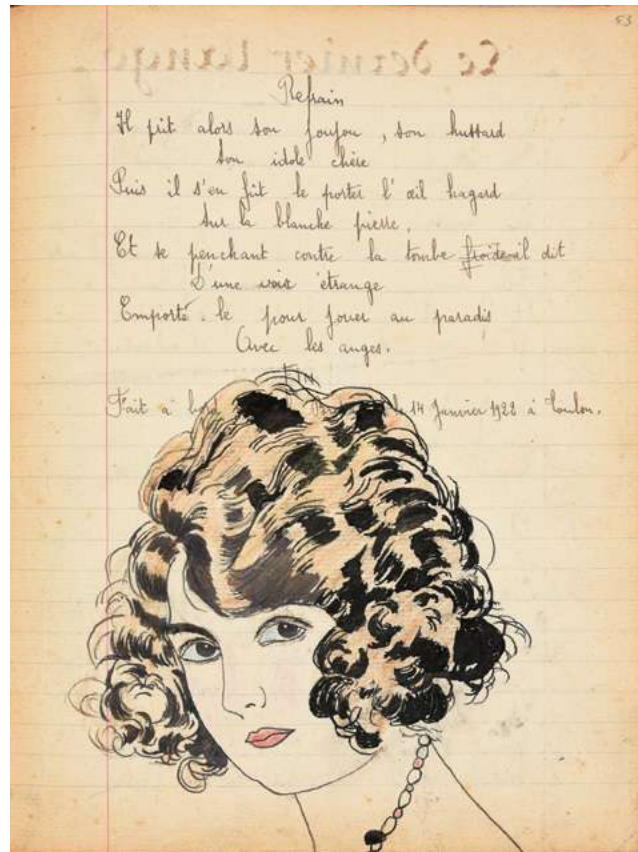 53
Le dernier tango
Refrain
Il prit alors son joujou, son hussard
Son idole chère
Puis il s'en fût le porter l'œil hagard
Sur la blanche pierre.
Et se penchant contre la tombe froide il dit
D'une voix étrange
Emporté-le pour jouer au paradis
Avec les anges.
Fin
Fait à bord le 14 Janvier 1922 à Toulon.